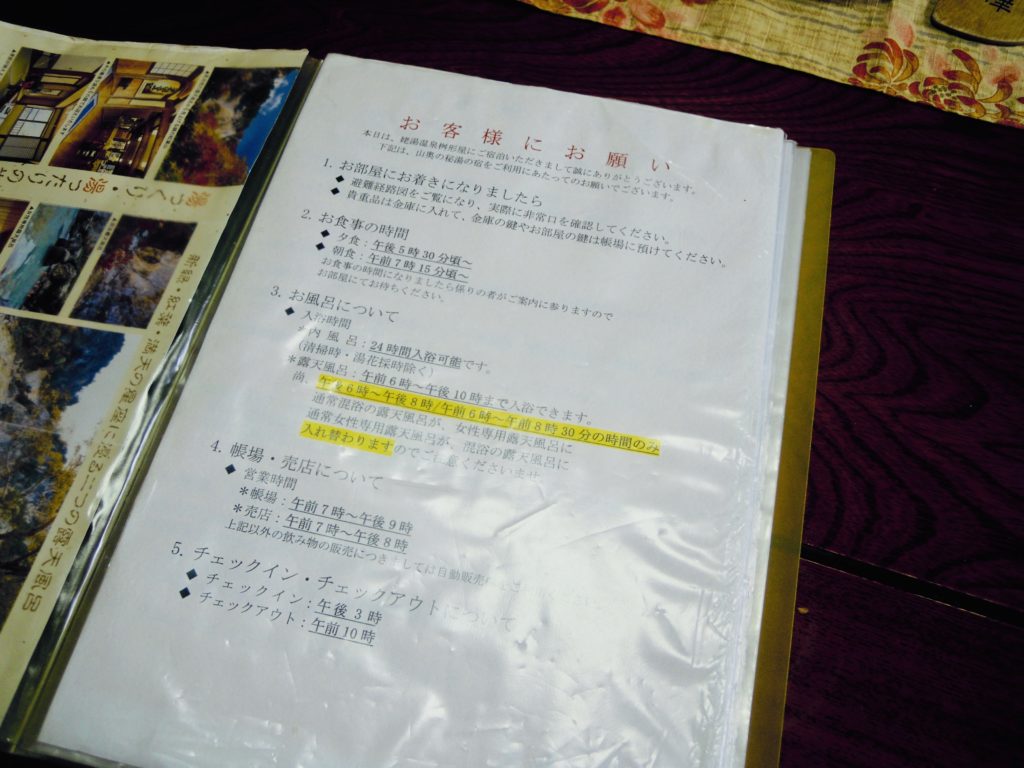 お客様にお願い
本日は、姥湯温泉桝形屋にご宿泊いただきまして誠にありがとうございます。
下記は、山奥の秘湯の宿をご利用にあたってのお願いでございます。
1. お部屋にお着きになりましたら
◆ 避難経路図をご覧になり、実際に非常口を確認してください。
◆ 貴重品は金庫に入れて、金庫の鍵やお部屋の鍵は帳場に預けてください。
2. お食事の時間
◆ 夕食：午後5時30分頃～
◆ 朝食：午前7時15分頃～
お食事の時間になりましたら係りの者がご案内に参りますので
お部屋にてお待ちください。
3. お風呂について
◆ 入浴時間
＊内 風 呂：24時間入浴可能です。
（清掃時・湯花採時除く）
＊露天風呂：午前6時～午後10時まで入浴できます。
尚、午後6時～午後8時/午前6時～午前8時30分の時間のみ
通常混浴の露天風呂が、女性専用露天風呂に
通常女性専用露天風呂が、混浴の露天風呂に
入れ替わりますのでご注意くださいませ
4. 帳場・売店について
◆ 営業時間
＊帳場：午前7時～午後9時
＊売店：午前7時～午後8時
上記以外の飲み物の販売につきましては自動販売
5. チェックイン・チェックアウトについて
◆ チェックイン：午後3時
◆ チェックアウト：午前10時
新緑・紅葉・満天の星空に返る二つの露天風呂